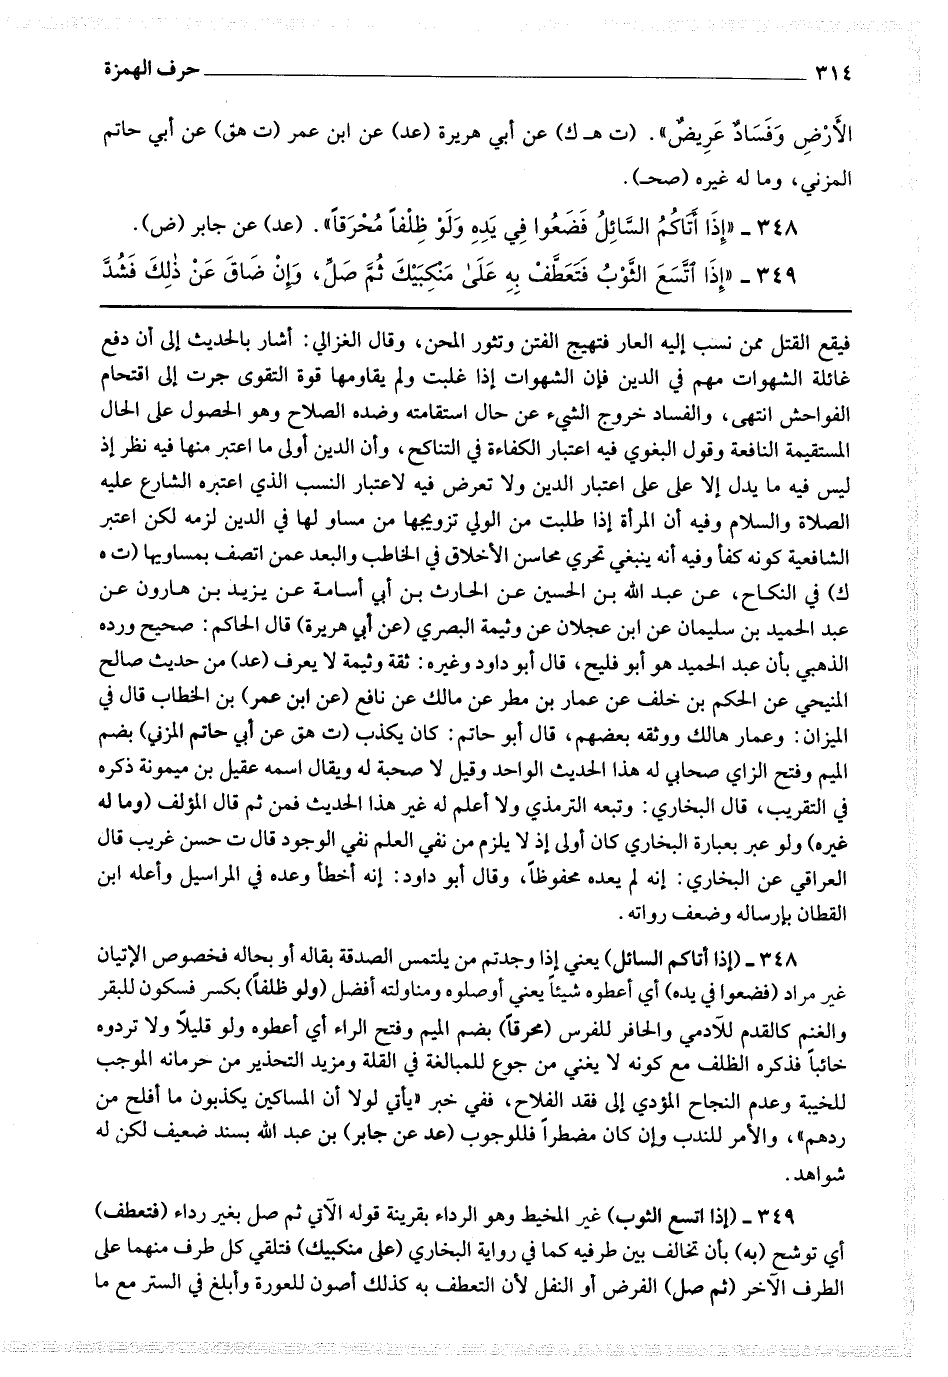 ٣١٤ حرف الهمزة
الأَرْضِ وَفَسَادٌ عَرِيضٌ». (ت هـ ك) عن أبي هريرة (عد) عن ابن عمر (ت هق) عن أبي حاتم
المزني، وما له غيره (صحـ).
٣٤٨ ـ «إِذَا أَتَاكُمُ السَّائِلُ فَضَعُوا فِي يَدِهِ وَلَوْ ظِلْفاً مُحْرَقاً». (عد) عن جابر (ض).
٣٤٩ ـ «إِذَا ٱتَّسَعَ الثَّوْبُ فَتَعَطَّفْ بِهِ عَلَىٰ مَنْكِبَيْكَ ثُمَّ صَلِّ، وَإِنْ ضَاقَ عَنْ ذٰلِكَ فَشُدَّ
فيقع القتل ممن نسب إليه العار فتهيج الفتن وتثور المحن، وقال الغزالي: أشار بالحديث إلى أن دفع
غائلة الشهوات مهم في الدين فإن الشهوات إذا غلبت ولم يقاومها قوة التقوى جرت إلى اقتحام
الفواحش انتهى، والفساد خروج الشيء عن حال استقامته وضده الصلاح وهو الحصول على الحال
المستقيمة النافعة وقول البغوي فيه اعتبار الكفاءة في التناكح، وأن الدين أولى ما اعتبر منها فيه نظر إذ
ليس فيه ما يدل إلا على على اعتبار الدين ولا تعرض فيه لاعتبار النسب الذي اعتبره الشارع عليه
الصلاة والسلام وفيه أن المرأة إذا طلبت من الولي تزويجها من مساو لها في الدين لزمه لكن اعتبر
الشافعية كونه كفأ وفيه أنه ينبغي تحري محاسن الأخلاق في الخاطب والبعد عمن اتصف بمساويها (ت ه
ك) في النكاح، عن عبد الله بن الحسين عن الحارث بن أبي أسامة عن يزيد بن هارون عن
عبد الحميد بن سليمان عن ابن عجلان عن وثيمة البصري (عن أبي هريرة) قال الحاكم: صحيح ورده
الذهبي بأن عبد الحميد هو أبو فليح، قال أبو داود وغيره: ثقة وثيمة لا يعرف (عد) من حديث صالح
المنيحي عن الحكم بن خلف عن عمار بن مطر عن مالك عن نافع (عن ابن عمر) بن الخطاب قال في
الميزان: وعمار هالك ووثقه بعضهم، قال أبو حاتم: كان يكذب (ت هق عن أبي حاتم المزني) بضم
الميم وفتح الزاي صحابي له هذا الحديث الواحد وقيل لا صحبة له ويقال اسمه عقيل بن ميمونة ذكره
في التقريب، قال البخاري: وتبعه الترمذي ولا أعلم له غير هذا الحديث فمن ثم قال المؤلف (وما له
غيره) ولو عبر بعبارة البخاري كان أولى إذ لا يلزم من نفي العلم نفي الوجود قال ت حسن غريب قال
العراقي عن البخاري: إنه لم يعده محفوظاً، وقال أبو داود: إنه أخطأ وعده في المراسيل وأعله ابن
القطان بإرساله وضعف رواته.
٣٤٨ ـ (إذا أتاكم السائل) يعني إذا وجدتم من يلتمس الصدقة بقاله أو بحاله فخصوص الإتيان
غير مراد (فضعوا في يده) أي أعطوه شيئاً يعني أوصلوه ومناولته أفضل (ولو ظلفاً) بكسر فسكون للبقر
والغنم كالقدم للآدمي والحافر للفرس (محرقاً) بضم الميم وفتح الراء أي أعطوه ولو قليلاً ولا تردوه
خائباً فذكره الظلف مع كونه لا يغني من جوع للمبالغة في القلة ومزيد التحذير من حرمانه الموجب
للخيبة وعدم النجاح المؤدي إلى فقد الفلاح، ففي خبر «يأتي لولا أن المساكين يكذبون ما أفلح من
ردهم»، والأمر للندب وإن كان مضطراً فللوجوب (عد عن جابر) بن عبد الله بسند ضعيف لكن له
شواهد.
٣٤٩ ـ (إذا اتسع الثوب) غير المخيط وهو الرداء بقرينة قوله الآتي ثم صل بغير رداء (فتعطف)
أي توشح (به) بأن تخالف بين طرفيه كما في رواية البخاري (على منكبيك) فتلقي كل طرف منهما على
الطرف الآخر (ثم صل) الفرض أو النفل لأن التعطف به كذلك أصون للعورة وأبلغ في الستر مع ما